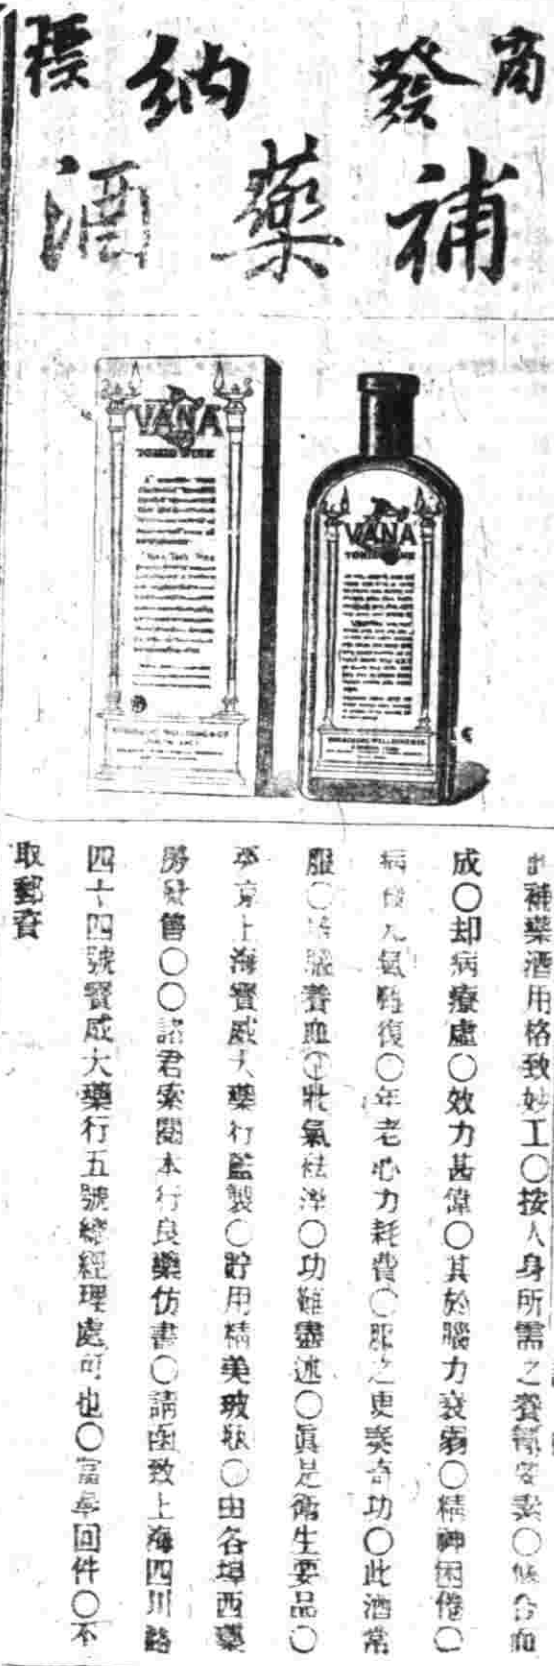 商標
發納
補藥酒
VANA
TONIC WINE
VANA
TONIC WINE
此補藥酒用格致妙工〇按人身所需之養氣〇條合而
成〇却病療虛〇效力甚偉〇其於腦力衰弱〇精神困倦〇
病後元氣難復〇年老心力耗費〇服之更奏奇功〇此酒常
服〇養血〇壯氣祛〇功難盡述〇眞是衛生要品〇
上海寶威大藥行監製〇貯用精美玻瓶〇由各埠西藥
房發售〇〇諸君索閱本行良藥仿書〇請函致上海四川路
四十四號寶威大藥行五號總經理處可也〇當奉回件〇不
取郵資